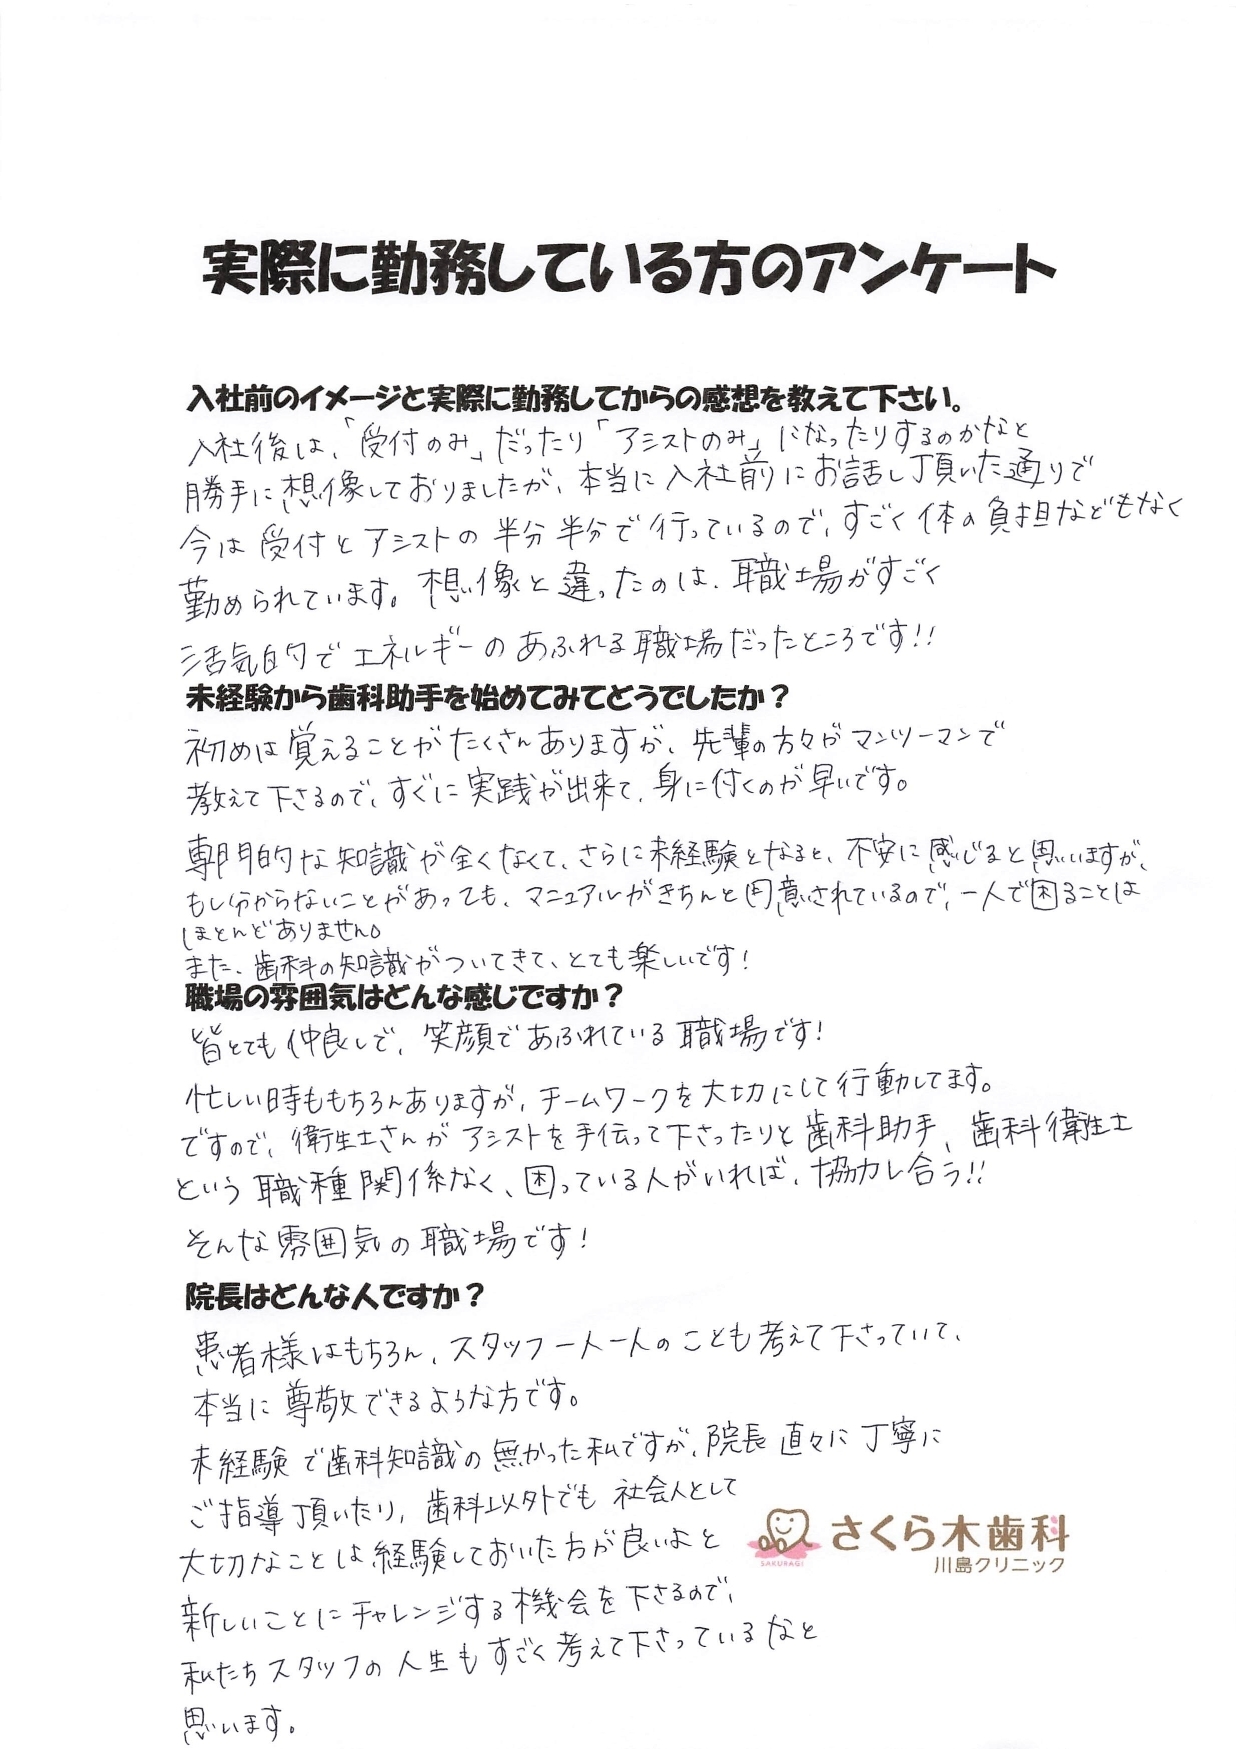 実際に勤務している方のアンケート
入社前のイメージと実際に勤務してからの感想を教えて下さい。
入社後は、「受付のみ」だったり「アシストのみ」になったりするのかなと
勝手に想像しておりましたが、本当に入社前にお話し頂いた通りで
今は受付とアシストの半分半分で行っているので、すごく体の負担などもなく
勤められています。想像と違ったのは、職場がすごく
活気的でエネルギーのあふれる職場だったところです!!
未経験から歯科助手を始めてみてどうでしたか？
初めは覚えることがたくさんありますが、先輩の方々がマンツーマンで
教えて下さるので、すぐに実践が出来て、身に付くのが早いです。
専門的な知識が全くなくて、さらに未経験となると、不安に感じると思いますが、
もし分からないことがあっても、マニュアルがきちんと用意されているので、一人で困ることは
ほとんどありません。
また、歯科の知識がついてきて、とても楽しいです!
職場の雰囲気はどんな感じですか？
皆とても仲良しで、笑顔であふれている職場です!
忙しい時ももちろんありますが、チームワークを大切にして行動してます。
ですので、衛生士さんがアシストを手伝って下さったりと歯科助手、歯科衛生士
という職種関係なく、困っている人がいれば、協力し合う!!
そんな雰囲気の職場です!
院長はどんな人ですか？
患者様はもちろん、スタッフ一人一人のことも考えて下さっていて、
本当に尊敬できるような方です。
未経験で歯科知識の無かった私ですが、院長直々に丁寧に
ご指導頂いたり、歯科以外でも社会人として
大切なことは経験しておいた方が良いよと
新しいことにチャレンジする機会を下さるので、
私たちスタッフの人生もすごく考えて下さっているなと
思います。
SAKURAGI
さくら木歯科
川島クリニック